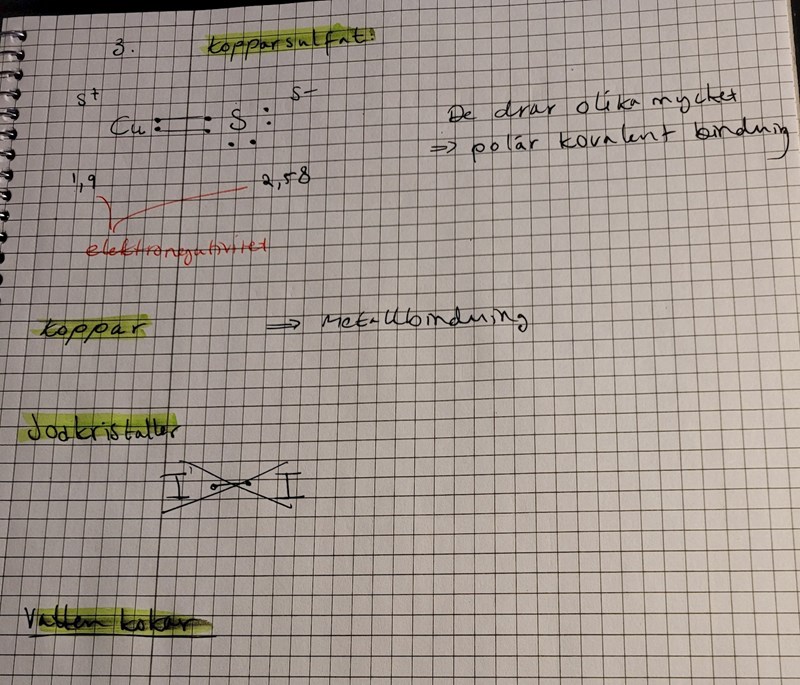 3. Kopparsulfat!
δ+ δ-
Cu :══: S :
De drar olika mycket
⇒ polär kovalent bindning
1,9 2,58
elektronegativitet
Koppar ⇒ Metallbindning
Jodkristaller
I I
Vatten kokar